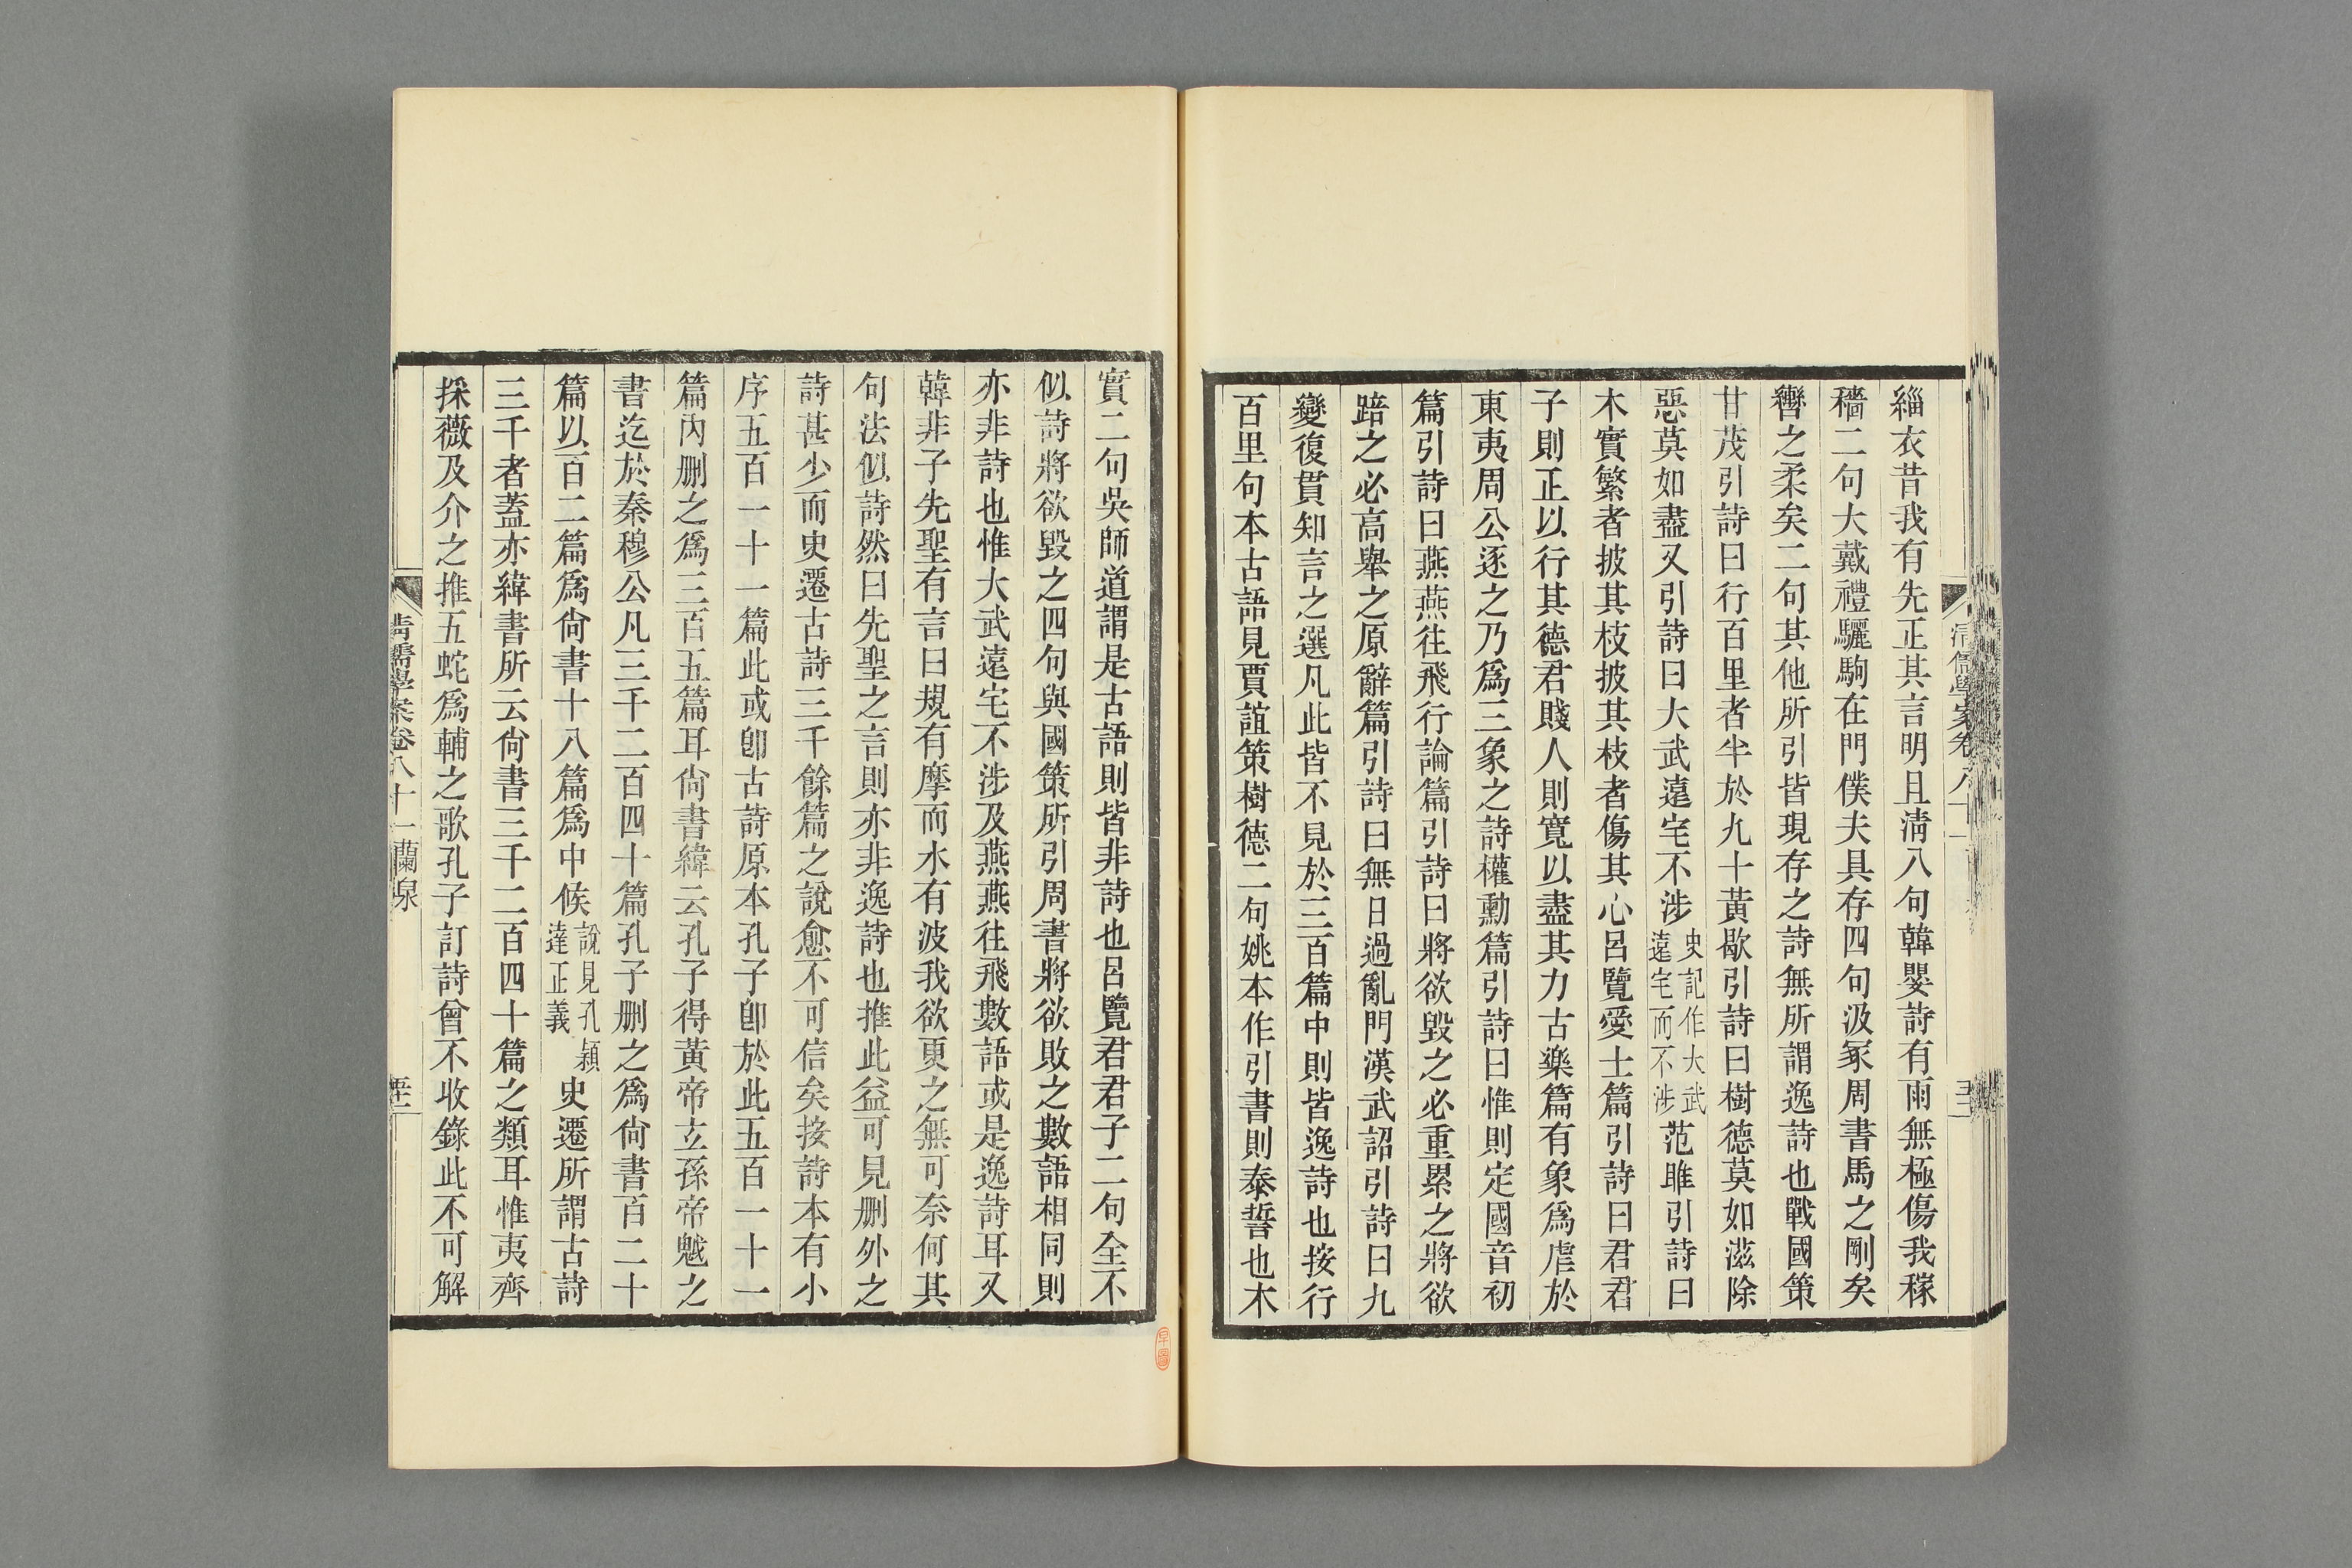 緇衣昔我有先正其言明且淸八句韓嬰詩有雨無極傷我稼
穡二句大戴禮驪駒在門僕夫具存四句汲冢周書馬之剛矣
轡之柔矣二句其他所引皆現存之詩無所謂逸詩也戰國策
甘茂引詩曰行百里者半於九十黃歇引詩曰樹德莫如滋除
惡莫如盡又引詩曰大武遠宅不涉史記作大武遠宅而不涉范雎引詩曰
木實繁者披其枝披其枝者傷其心呂覽愛士篇引詩曰君君
子則正以行其德君賤人則寬以盡其力古樂篇有象爲虐於
東夷周公逐之乃爲三象之詩權勳篇引詩曰惟則定國音初
篇引詩曰燕燕往飛行論篇引詩曰將欲毀之必重累之將欲
踣之必高舉之原辭篇引詩曰無日過亂門漢武詔引詩曰九
變復貫知言之選凡此皆不見於三百篇中則皆逸詩也按行
百里句本古語見賈誼策樹德二句姚本作引書則泰誓也木
實二句吳師道謂是古語則皆非詩也呂覽君君子二句全不
似詩將欲毀之四句與國策所引周書將欲敗之數語相同則
亦非詩也惟大武遠宅不涉及燕燕往飛數語或是逸詩耳又
韓非子先聖有言曰規有摩而水有波我欲更之無可奈何其
句法似詩然曰先聖之言則亦非逸詩也推此益可見刪外之
詩甚少而史遷古詩三千餘篇之說愈不可信矣按詩本有小
序五百一十一篇此或卽古詩原本孔子卽於此五百一十一
篇內刪之爲三百五篇耳尙書緯云孔子得黃帝玄孫帝魁之
書迄於秦穆公凡三千二百四十篇孔子刪之爲尙書百二十
篇以百二篇爲尙書十八篇爲中候說見孔穎達正義史遷所謂古詩
三千者蓋亦緯書所云尙書三千二百四十篇之類耳惟夷齊
採薇及介之推五蛇爲輔之歌孔子訂詩曾不收錄此不可解
淸儒學案卷八十一 蘭泉